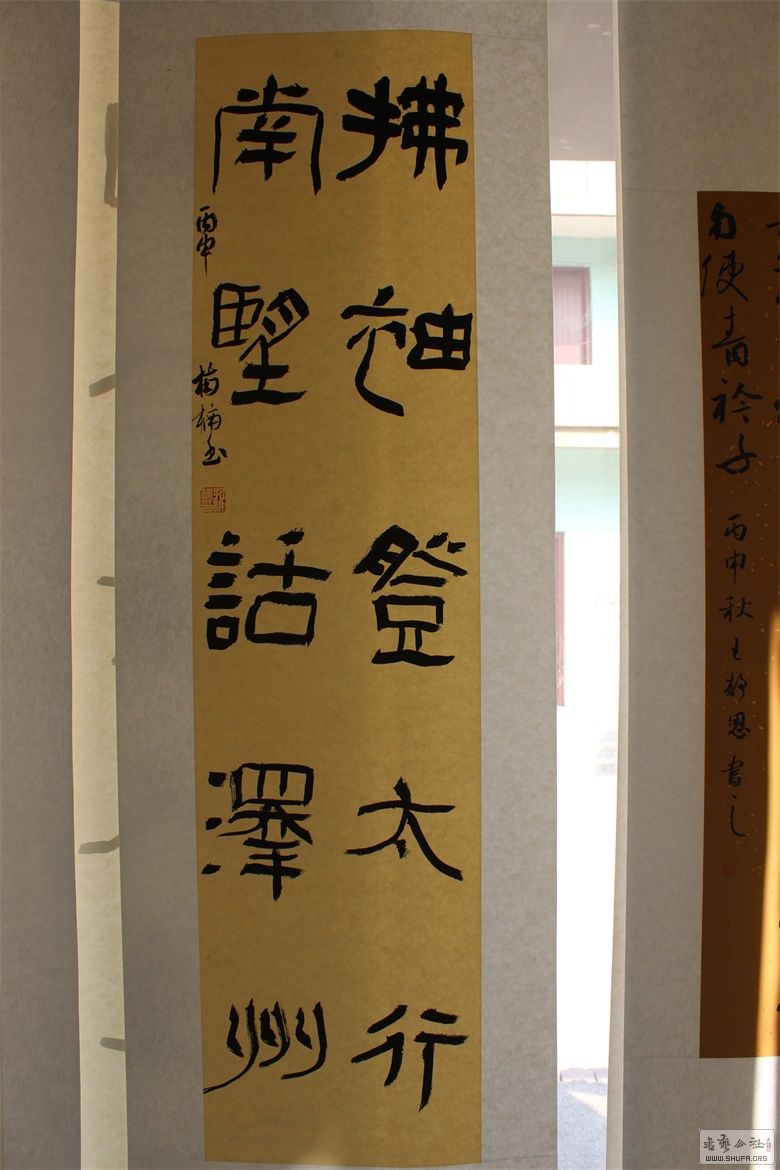 拂袖登太行
南朢話澤州
丙申
楠楠书
勿使青衿子
丙申秋王静恩書之
书艺公社
WWW.SHUFA.ORG